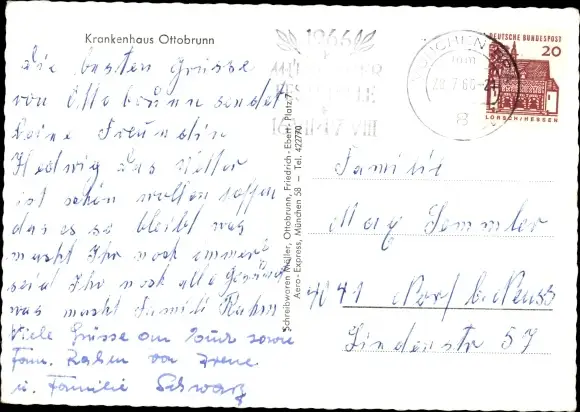 Krankenhaus Ottobrunn
die besten Grüsse
von Ottobrunn sendet
Deine Freundin
Hedwig das Wetter
ist schön wollen hoffen
das es so bleibt was
macht Ihr noch immer
seid Ihr noch alle Gesund
was macht Familie Rahm
Viele Grüsse an Euch sowie
Fam. von Irene
u. Familie Schwarz
Schreibwaren Müller, Ottobrunn, Friedrich-Ebert-Platz 7
Aero-Express, München 58 — Tel. 422770
1966
MÜNCHEN
8
DEUTSCHE BUNDESPOST
20
LORSCH/HESSEN
Familie
Semmler
4041 Norf b. Neuss
Lindenstr 57